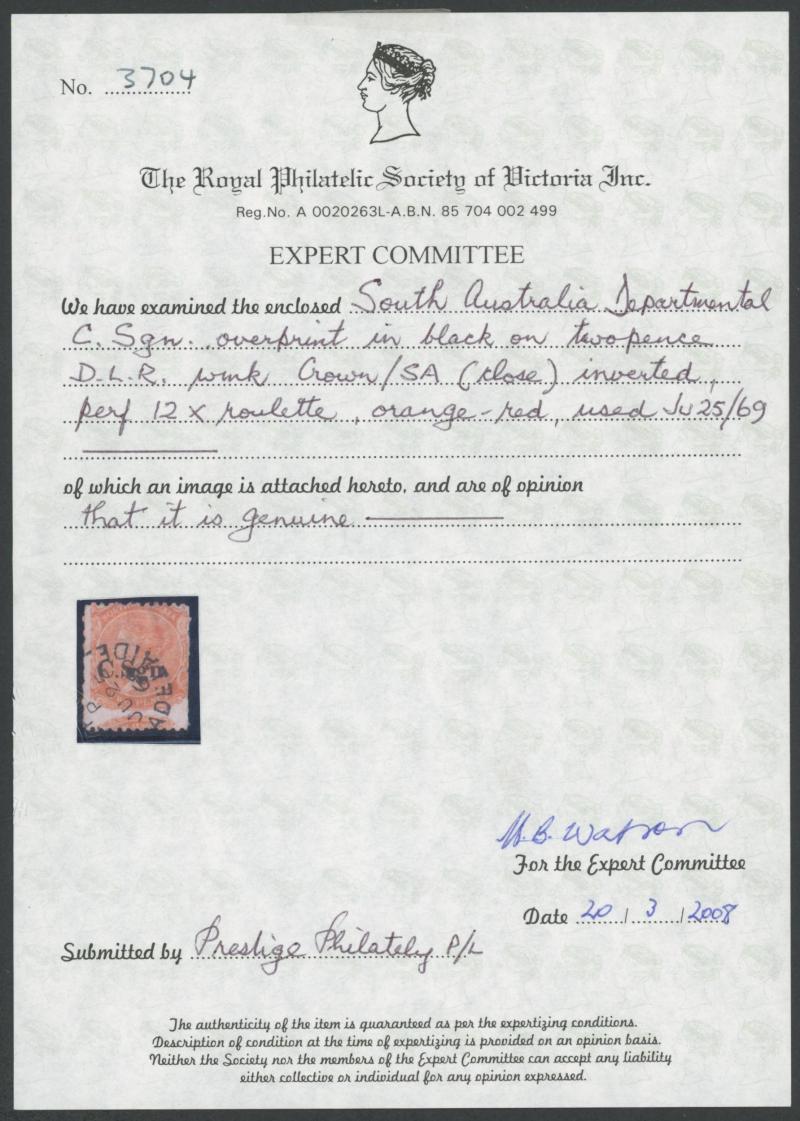 No. 3704
The Royal Philatelic Society of Victoria Inc.
Reg.No. A 0020263L-A.B.N. 85 704 002 499
EXPERT COMMITTEE
We have examined the enclosed South Australia Departmental
C. Sgn. overprint in black on twopence
D.L.R. wmk Crown/SA (close) inverted,
perf 12 x roulette, orange-red, used Ju 25/69
of which an image is attached hereto, and are of opinion
that it is genuine
C.Sgn.
JU 25
ADELAIDE
H.B. Watson
For the Expert Committee
Date 20 / 3 / 2008
Submitted by Prestige Philately P/L
The authenticity of the item is guaranteed as per the expertizing conditions.
Description of condition at the time of expertizing is provided on an opinion basis.
Neither the Society nor the members of the Expert Committee can accept any liability
either collective or individual for any opinion expressed.